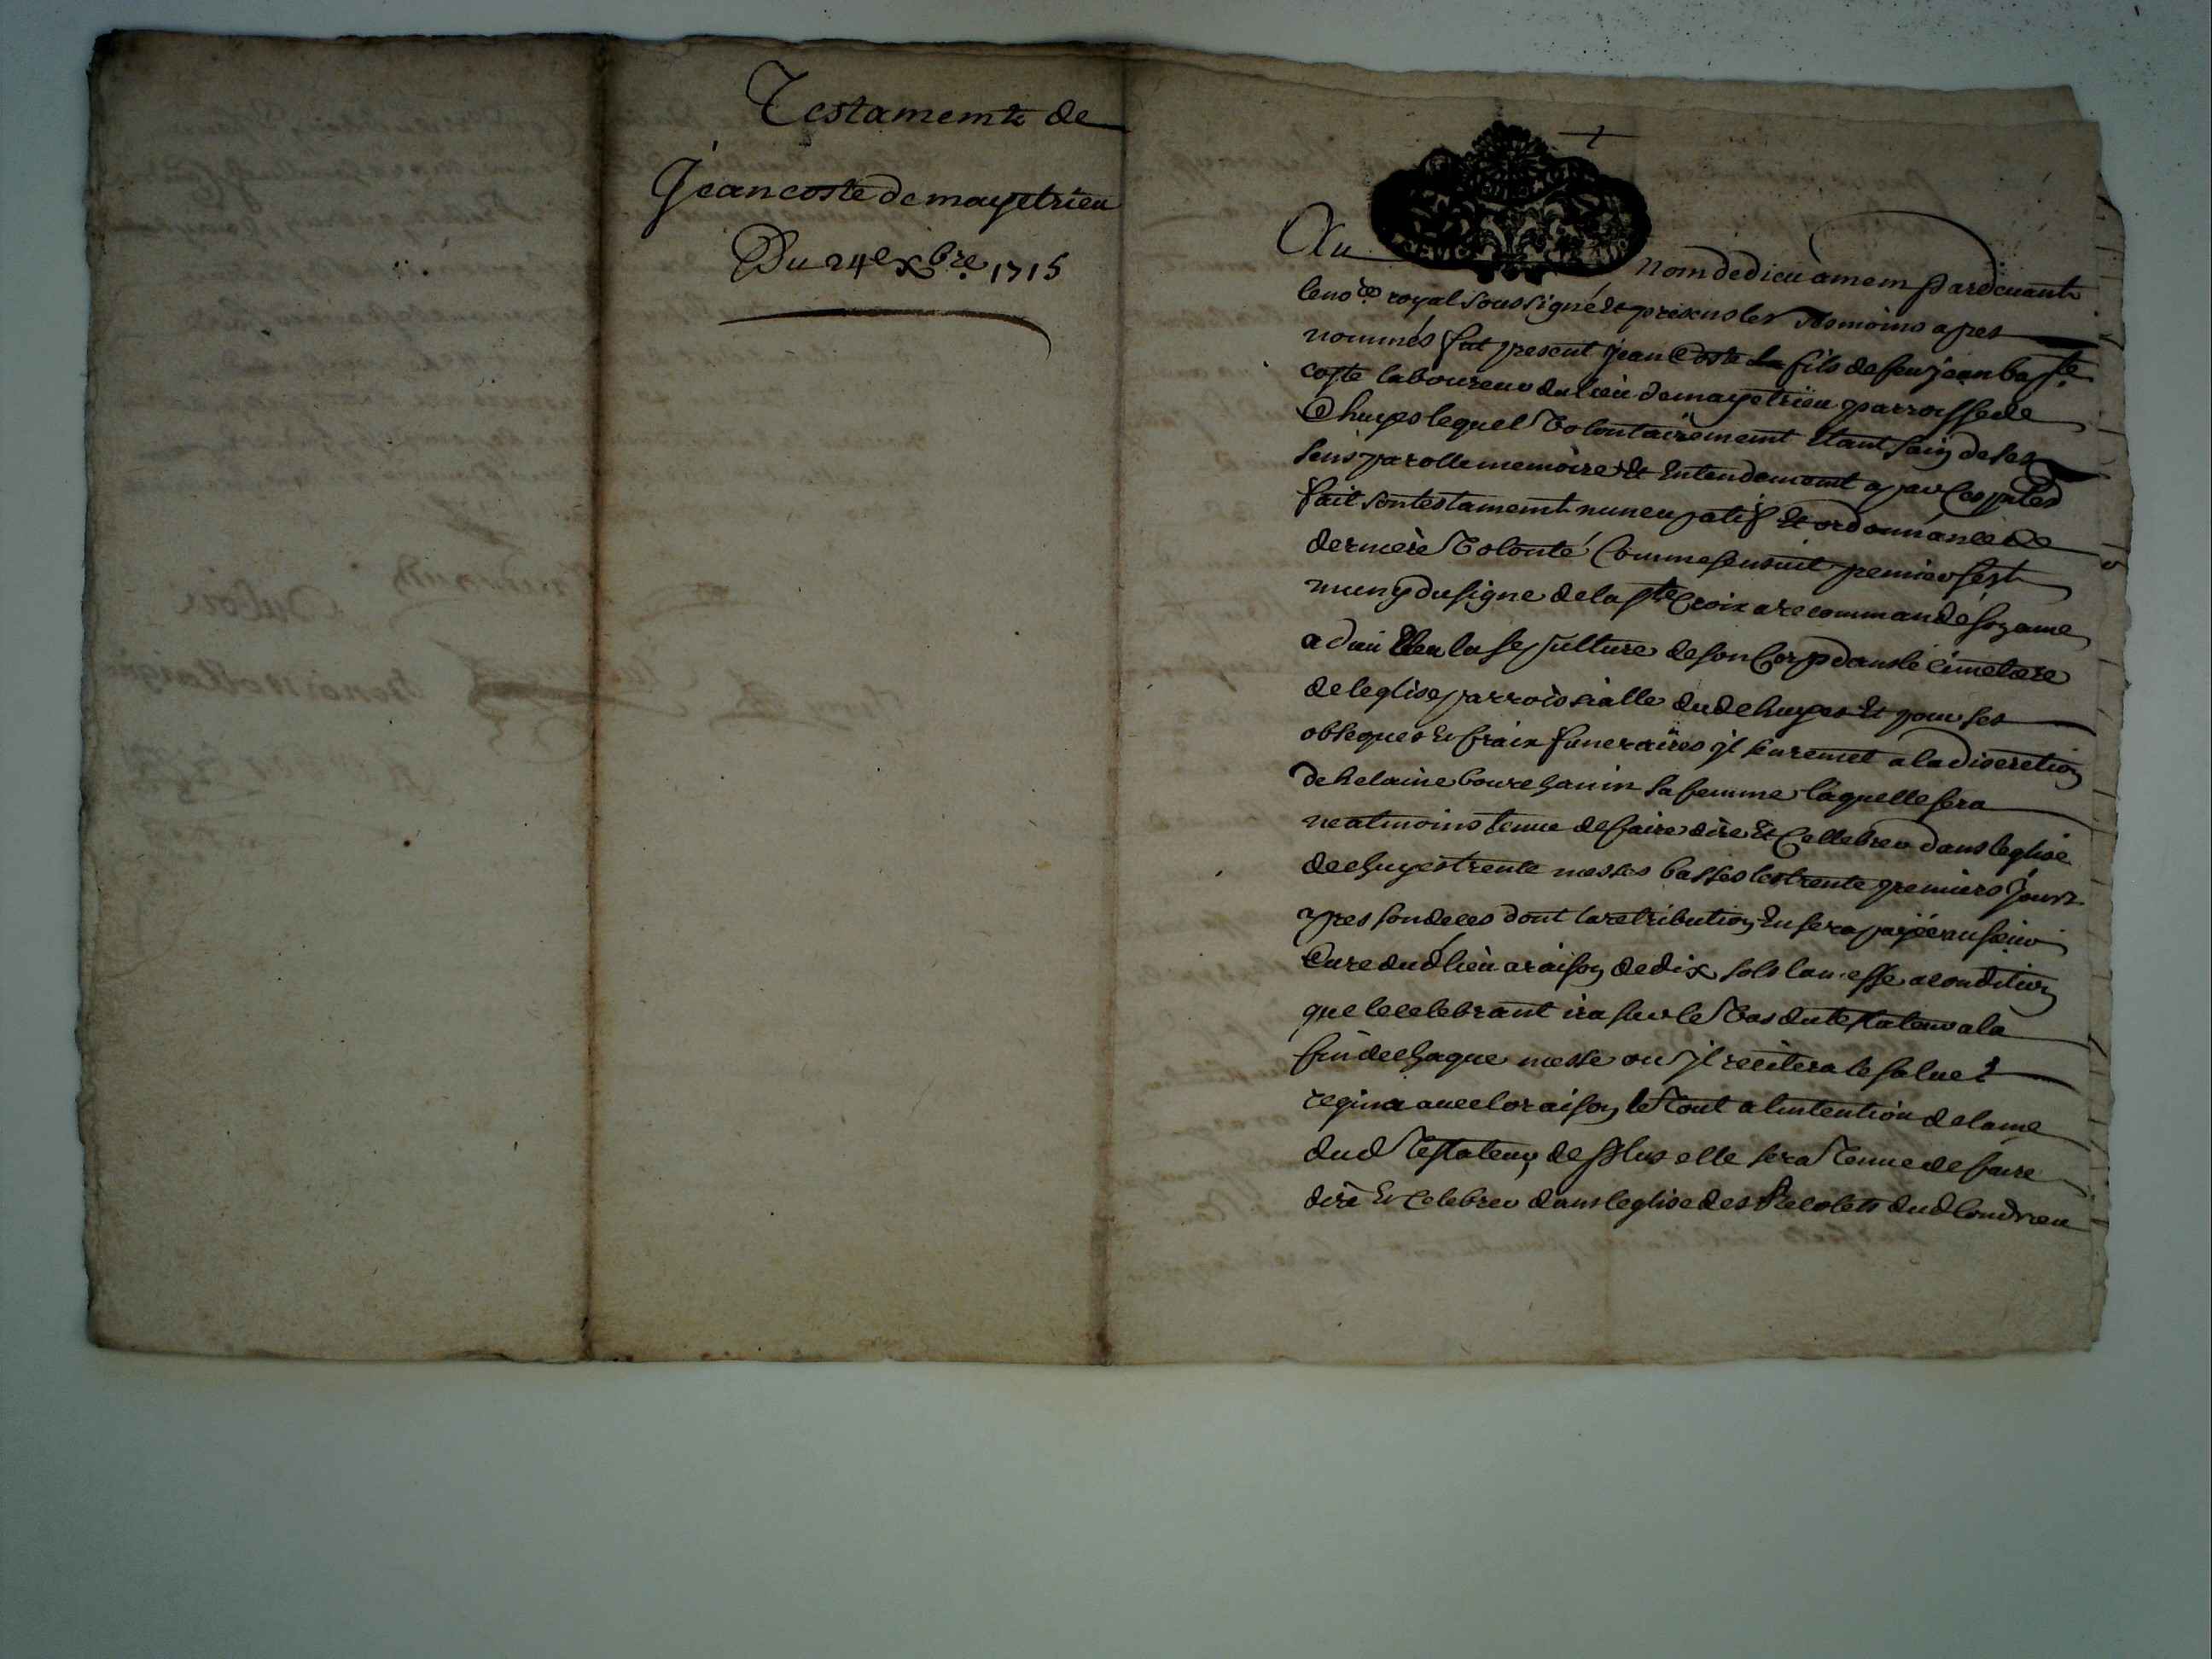 Testament de
Jean coste de mayetrieu
Du 24e xbre 1715
Au nom de dieu amem Pardeuant
le nore royal soussigné et presens les tesmoins apres
nommés fut present jean Coste fils de feu jean baste
coste laboureur du lieu de mayetrieu parroisse de
Chuyes lequel volontairement etant sain de ses
sens parolle memoire et entendement a par ces pntes
fait son testament nuncupatif et ordonnance de
derniere volonté comme sensuit premier sest
muny du signe de la ste Croix a recommandé son ame
a dieu Eleu la sepulture de son Corp dans le cimetiere
de leglise parroissialle dud chuyes et pour ses
obseques et fraix funeraires jl sen remet a la discretion
de helaine bourchanin sa femme laquelle sera
neatmoins tenue de faire dire et Cellebrer dans leglise
de chuyes trente messes basses les trente premiers jours
apres son deces dont la retribution en sera payée au sieur
Curé dud lieu a raison de dix sols la messe a condition
que le celebrant ira sur le vas du testateur a la
fin de chaque messe ou jl recitera le salue
regina auec loraison le tout a lintention de lame
dud testateur de plus elle sera tenue de faire
dire et Celebrer dans leglise des Recolets dud Condrieu